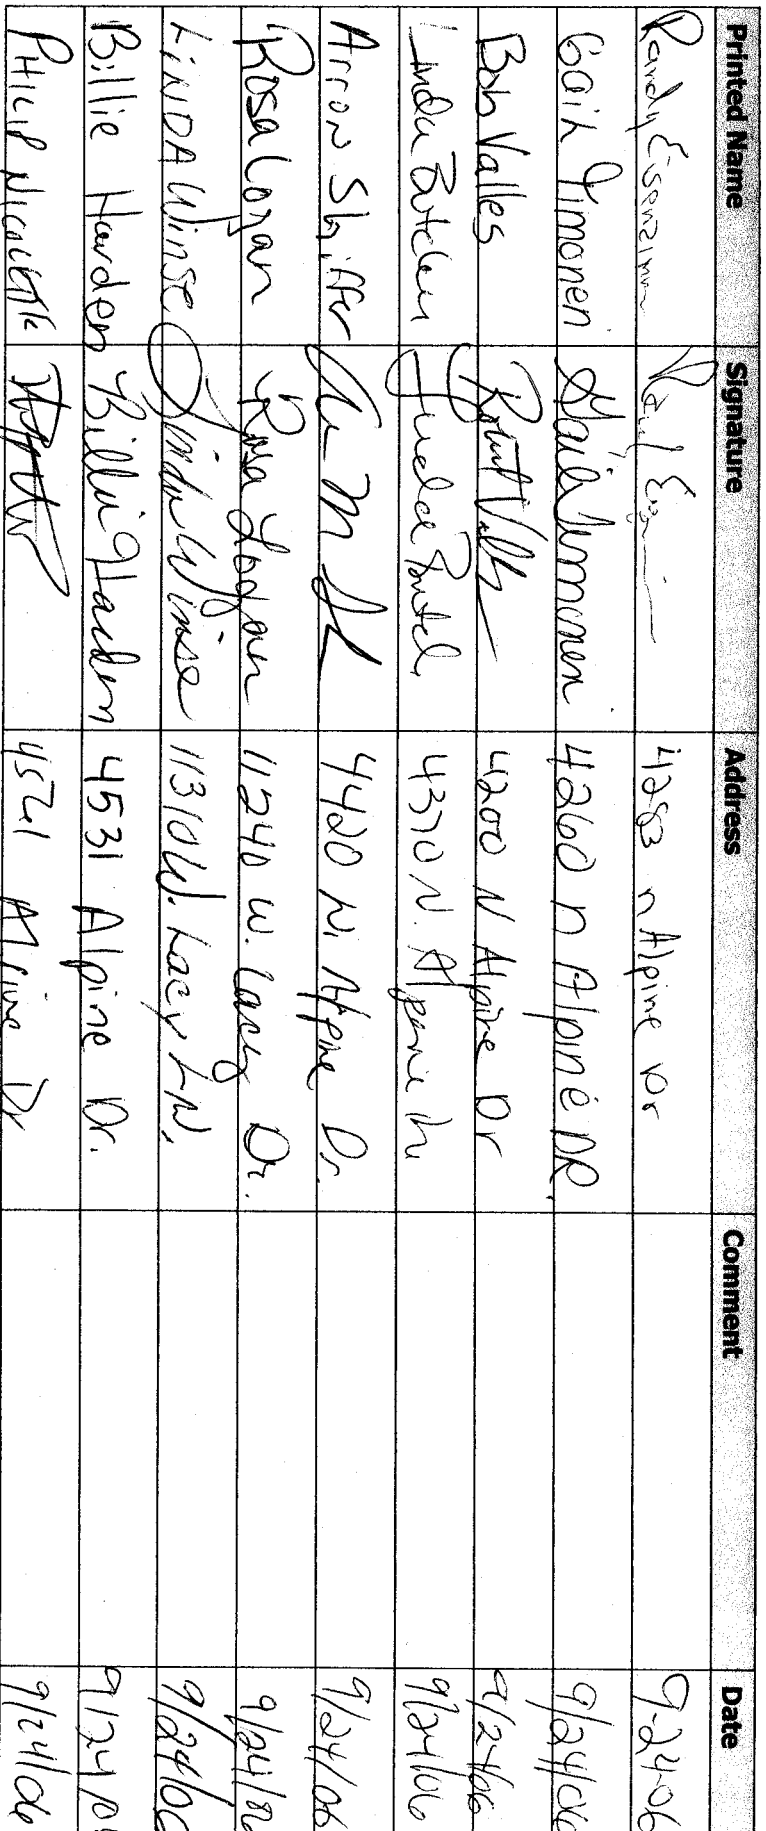 Printed Name Signature Address Comment Date
Randy 4283 n Alpine Dr 9-24-06
Gail Timonen Gail Timonen 4260 n Alpine DR. 9/24/06
Bob Valles Robert Valles 4200 N Alpine Dr 9/24/06
Linda 4370 N. Alpine 9/24/06
Arron Shiffer 4420 N. Alpine Dr. 9/24/06
Rosa Logan Rosa Logan 11240 W. Lacy Dr. 9/24/06
LINDA Winse Linda Winse 11310 W. Lacy LN. 9/24/06
Billie Harden Billie Harden 4531 Alpine Dr. 9/24/0
PHILIP Alpine Dr 9/24/06